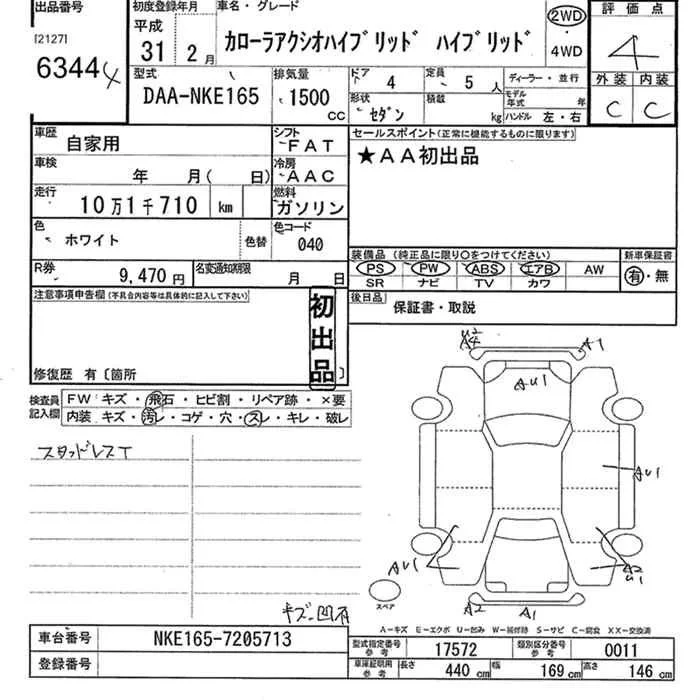 出品番号
[2127]
6344
初度登録年月
平成
31 2 月
車名・グレード
カローラアクシオハイブリッド ハイブリッド
2WD
・
4WD
評価点
4
外装 内装
C C
型式
DAA-NKE165
排気量
1500
cc
ドア
4
定員
5 人
形状
セダン
積載
kg
ディーラー・並行
モデル年式 年
ハンドル 左・右
車歴
自家用
シフト
FAT
車検
年 月( 日)
冷房
AAC
走行
10万1千710 km
燃料
ガソリン
色
ホワイト
色替
色コード
040
R券
9,470 円
名変通知期限
月 日
セールスポイント(正常に機能するものに限ります)
★AA初出品
装備品 (純正品に限り○をつけてください)
PS PW ABS エアB AW
SR ナビ TV カワ
新車保証書
有・無
後日品
保証書・取説
注意事項申告欄(不具合内容等は具体的に記入して下さい)
初出品
修復歴 有〔箇所 〕
検査員記入欄
FW キズ・飛石・ヒビ割・リペア跡・×要
内装 キズ・汚レ・コゲ・穴・スレ・キレ・破レ
スタッドレスT
キズ凹有
A2
A1
AU1
AU1
AU1
A2
U1
A2
A1
スペア
A-キズ E-エクボ U-凹み W-補修跡 S-サビ C-腐食 XX-交換済
車台番号
NKE165-7205713
登録番号
型式指定番号
参考
17572
類別区分番号
参考
0011
車庫証明用
参考
長さ 440 cm
幅 169 cm
高さ 146 cm